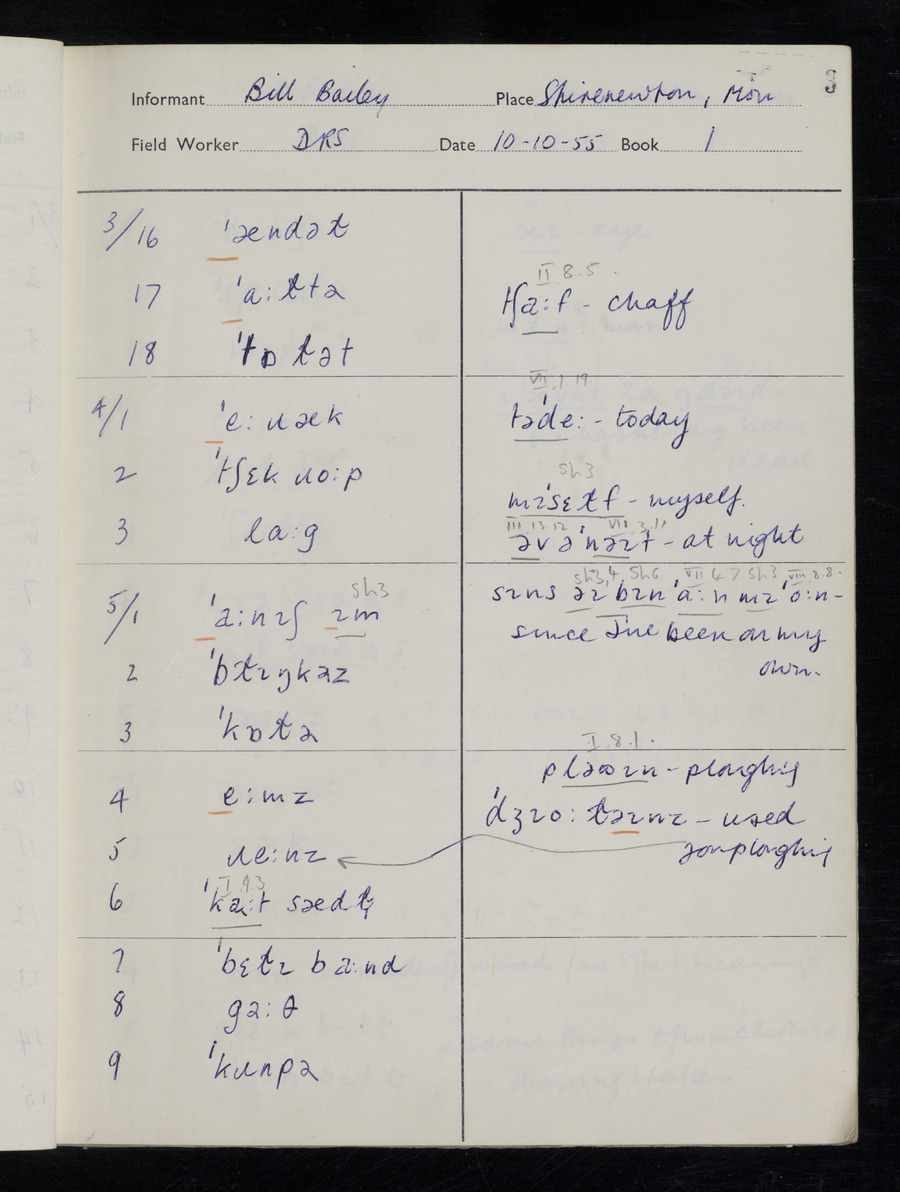 3
Informant Bill Bailey Place Shirenewton, Mon
Field Worker DRS Date 10-10-55 Book 1
3/16 ˈændəɫ
17 ˈaːɫtə
18 ˈtɒɫət
II 8.5.
tʃaːf - chaff
4/1 ˈeːɹæk
2 ˈtʃɛk ɹoːp
3 laːg
VII.1.19
təˈdeː - today
Sh3
mɪˈsɛɫf - myself.
III.13.12 VII.3.11
əv əˈnəɪt - at night
Sh3
5/1 ˈaːnɪʃ ɪm
2 ˈbɫɪŋkəz
3 ˈkɒɫə
Sh3,4 Sh6 VII 4 7 Sh3 VIII.8.8.
sɪns əɪ bɪn ˈaːn mɪ ˈoːn -
since I've been on my
own.
4 eːmz
5 ɹeːnz
I.9.3
6 ˈkaːt sædɫ̩
I.8.1.
pləʊɪn - ploughing
ˈdʒɪoː ɫəɪnz - used
for ploughing
7 ˈbɛɫɪ baːnd
8 gəːθ
9 ˈkɹʊpə